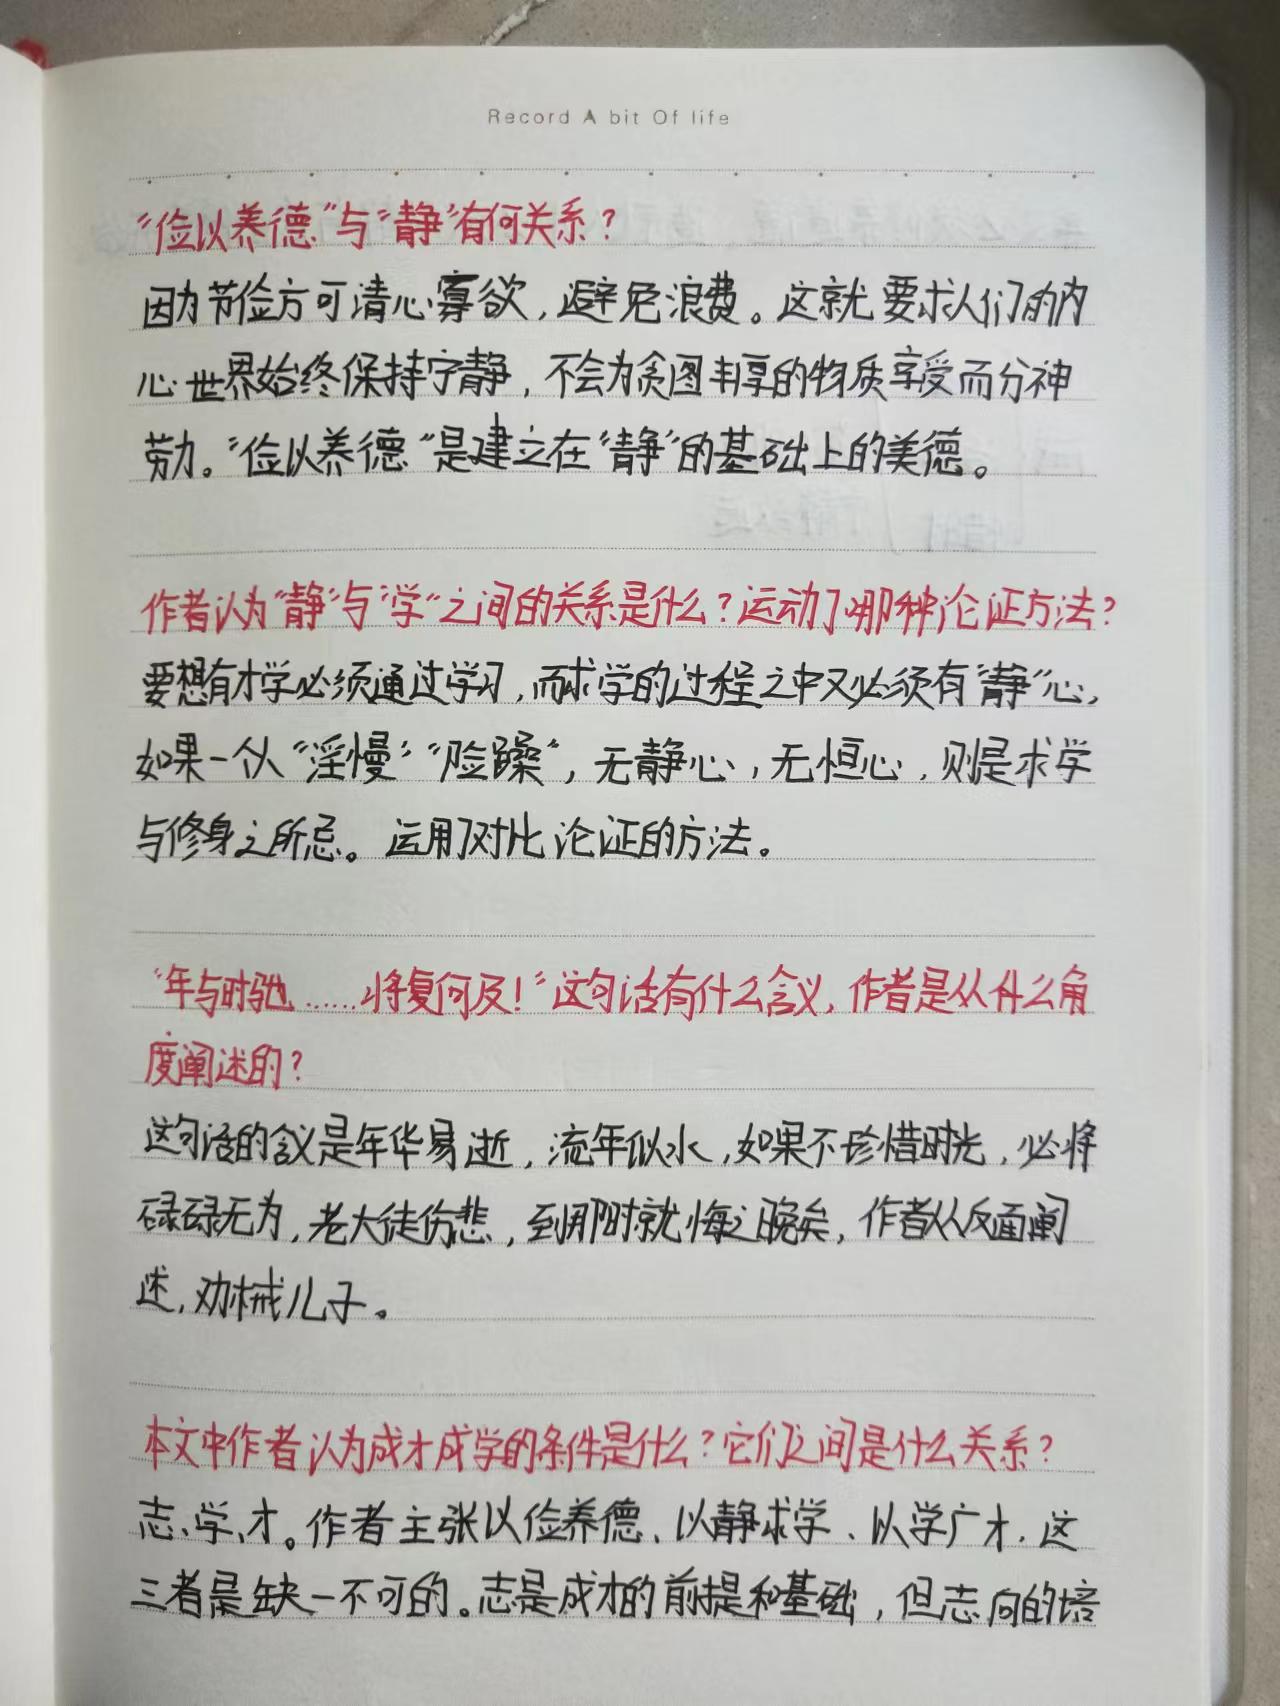 Record A bit Of life
“俭以养德”与“静”有何关系？
因为节俭方可清心寡欲，避免浪费。这就要求人们的内
心世界始终保持宁静，不会为贪图丰厚的物质享受而分神
劳力。“俭以养德”是建立在“静”的基础上的美德。
作者认为“静”与“学”之间的关系是什么？运动了哪种论证方法？
要想有才学必须通过学习，而求学的过程之中又必须有“静”心，
如果一个人“淫慢”“险躁”，无静心，无恒心，则是求学
与修身之所忌。运用了对比论证的方法。
“年与时驰……将复何及！”这句话有什么含义，作者是从什么角
度阐述的？
这句话的含义是年华易逝，流年似水，如果不珍惜时光，必将
碌碌无为，老大徒伤悲，到那时就悔之晚矣，作者从反面阐
述，劝械儿子。
本文中作者认为成才成学的条件是什么？它们之间是什么关系？
志、学、才。作者主张以俭养德、以静求学、以学广才，这
三者是缺一不可的。志是成才的前提和基础，但志向的培